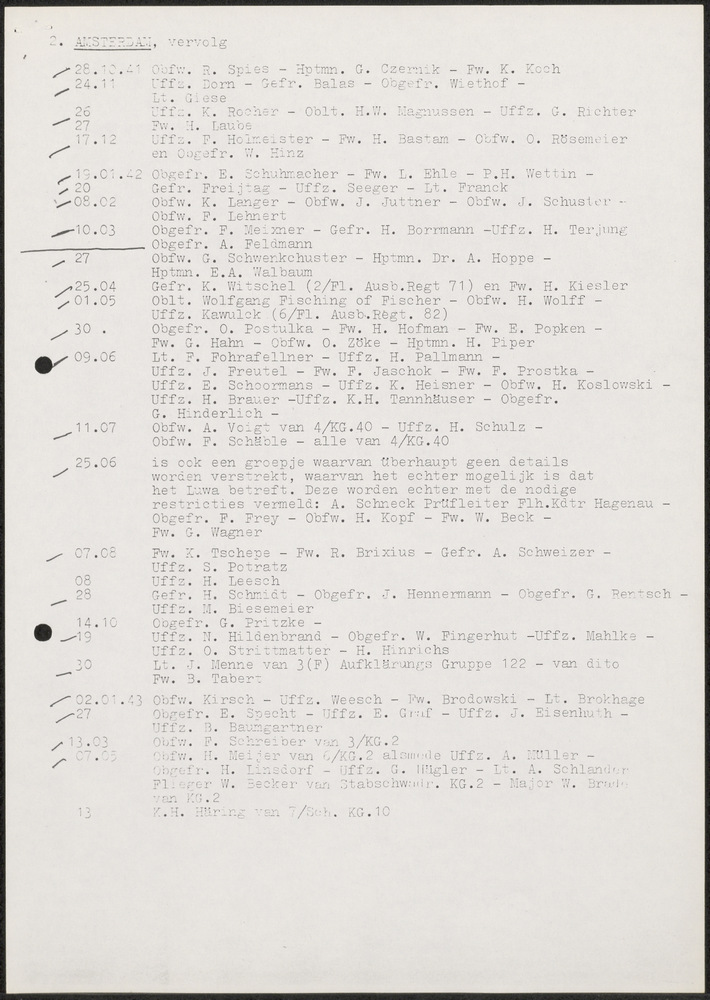 2. AMSTERDAM, vervolg
28.10.41 Obfw. R. Spies - Hptmn. G. Czernik - Fw. K. Koch
24.11 Uffz. Dorn - Gefr. Balas - Obgefr. Wiethof -
Lt. Giese
26 Uffz. K. Rocher - Oblt. H.W. Magnussen - Uffz. G. Richter
27 Fw. H. Laube
17.12 Uffz. F. Holmeister - Fw. H. Bastam - Obfw. O. Rösemeier
en Obgefr. W. Hinz
19.01.42 Obgefr. E. Schuhmacher - Fw. L. Ehle - P.H. Wettin -
20 Gefr. Freijtag - Uffz. Seeger - Lt. Franck
08.02 Obfw. K. Langer - Obfw. J. Juttner - Obfw. J. Schuster -
Obfw. F. Lehnert
10.03 Obgefr. F. Meixner - Gefr. H. Borrmann -Uffz. H. Terjung
Obgefr. A. Feldmann
27 Obfw. G. Schwenkchuster - Hptmn. Dr. A. Hoppe -
Hptmn. E.A. Walbaum
25.04 Gefr. K. Witschel (2/Fl. Ausb.Regt 71) en Fw. H. Kiesler
01.05 Oblt. Wolfgang Fisching of Fischer - Obfw. H. Wolff -
Uffz. Kawulok (6/Fl. Ausb.Regt. 82)
30 . Obgefr. O. Postulka - Fw. H. Hofman - Fw. E. Popken -
Fw. G. Hahn - Obfw. O. Zöke - Hptmn. H. Piper
09.06 Lt. F. Fohrafellner - Uffz. H. Pallmann -
Uffz. J. Freutel - Fw. F. Jaschok - Fw. F. Prostka -
Uffz. E. Schoormans - Uffz. K. Heisner - Obfw. H. Koslowski -
Uffz. H. Brauer -Uffz. K.H. Tannhäuser - Obgefr.
G. Hinderlich -
11.07 Obfw. A. Voigt van 4/KG.40 - Uffz. H. Schulz -
Obfw. F. Schäble - alle van 4/KG.40
25.06 is ook een groepje waarvan überhaupt geen details
worden verstrekt, waarvan het echter mogelijk is dat
het Luwa betreft. Deze worden echter met de nodige
restricties vermeld: A. Schneck Prüfleiter Flh.Kdtr Hagenau -
Obgefr. F. Frey - Obfw. H. Kopf - Fw. W. Beck -
Fw. G. Wagner
07.08 Fw. K. Tschepe - Fw. R. Brixius - Gefr. A. Schweizer -
Uffz. S. Potratz
08 Uffz. H. Leesch
28 Gefr. H. Schmidt - Obgefr. J. Hennermann - Obgefr. G. Rentsch -
Uffz. M. Biesemeier
14.10 Obgefr. G. Pritzke -
19 Uffz. N. Hildenbrand - Obgefr. W. Fingerhut -Uffz. Mahlke -
Uffz. O. Strittmatter - H. Hinrichs
30 Lt. J. Menne van 3(F) Aufklärungs Gruppe 122 - van dito
Fw. B. Tabert
02.01.43 Obfw. Kirsch - Uffz. Weesch - Fw. Brodowski - Lt. Brokhage
27 Obgefr. E. Specht - Uffz. E. Graf - Uffz. J. Eisenhuth -
Uffz. B. Baumgartner
13.03 Obfw. F. Schreiber van 3/KG.2
07.05 Obfw. H. Meijer van 6/KG.2 alsmede Uffz. A. Müller -
Obgefr. H. Linsdorf - Uffz. G. Hügler - Lt. A. Schlander
Flieger W. Becker van Stabschwadr. KG.2 - Major W.
van KG.2
13 K.H. Häring van 7/Sch. KG.10